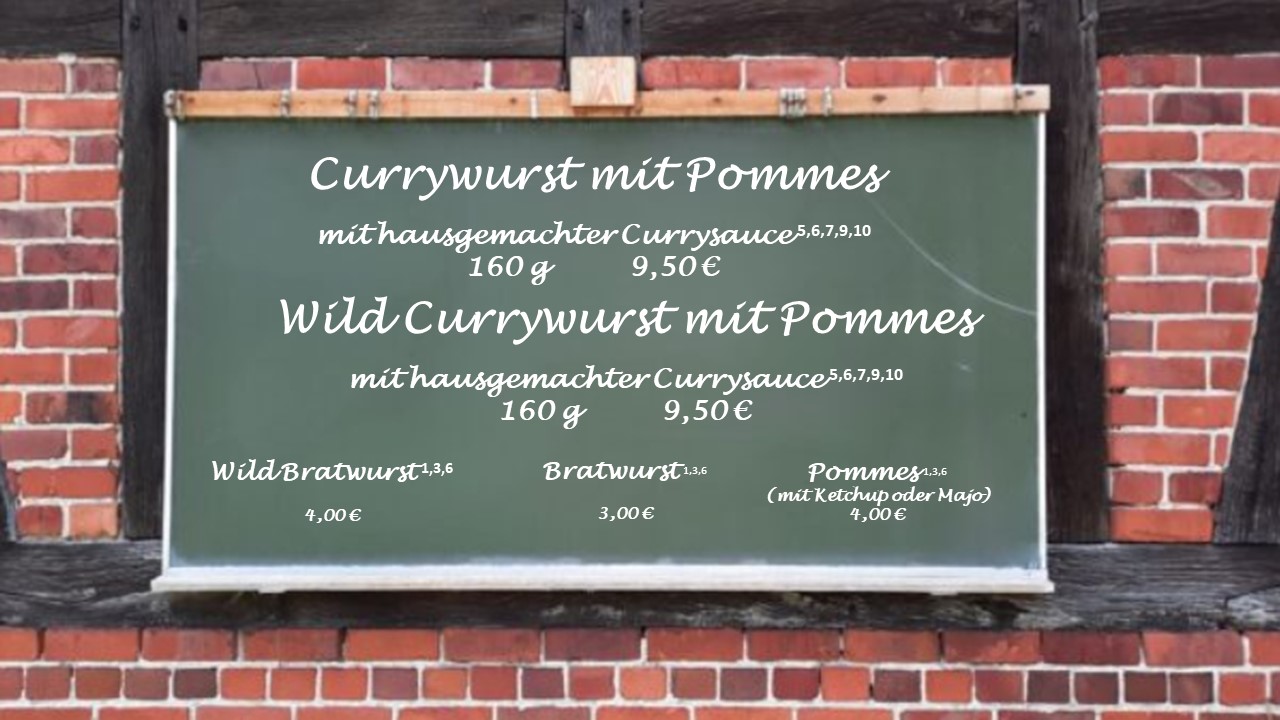 Currywurst mit Pommes
mit hausgemachter Currysauce5,6,7,9,10
160 g 9,50 €
Wild Currywurst mit Pommes
mit hausgemachter Currysauce5,6,7,9,10
160 g 9,50 €
Wild Bratwurst1,3,6 Bratwurst1,3,6 Pommes1,3,6
(mit Ketchup oder Majo)
4,00 € 3,00 € 4,00 €